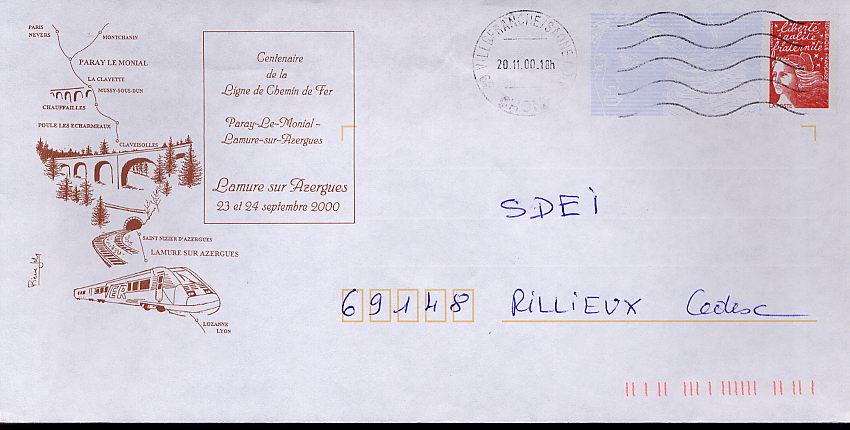 PARIS
NEVERS
MONTCHANIN
PARAY LE MONIAL
LA CLAYETTE
MUSSY-SOUS-DUN
CHAUFFAILLES
POULE LES ECHARMEAUX
CLAVEISOLLES
SAINT NIZIER D'AZERGUES
LAMURE SUR AZERGUES
TER
LOZANNE
LYON
Centenaire
de la
Ligne de Chemin de Fer
Paray-Le-Monial -
Lamure-sur-Azergues
Lamure sur Azergues
23 et 24 septembre 2000
VILLEFRANCHE/SAONE
20.11.00.18h
RHONE
liberté
égalité
fraternité
LA POSTE
SDEI
69148 RILLIEUX Cedex